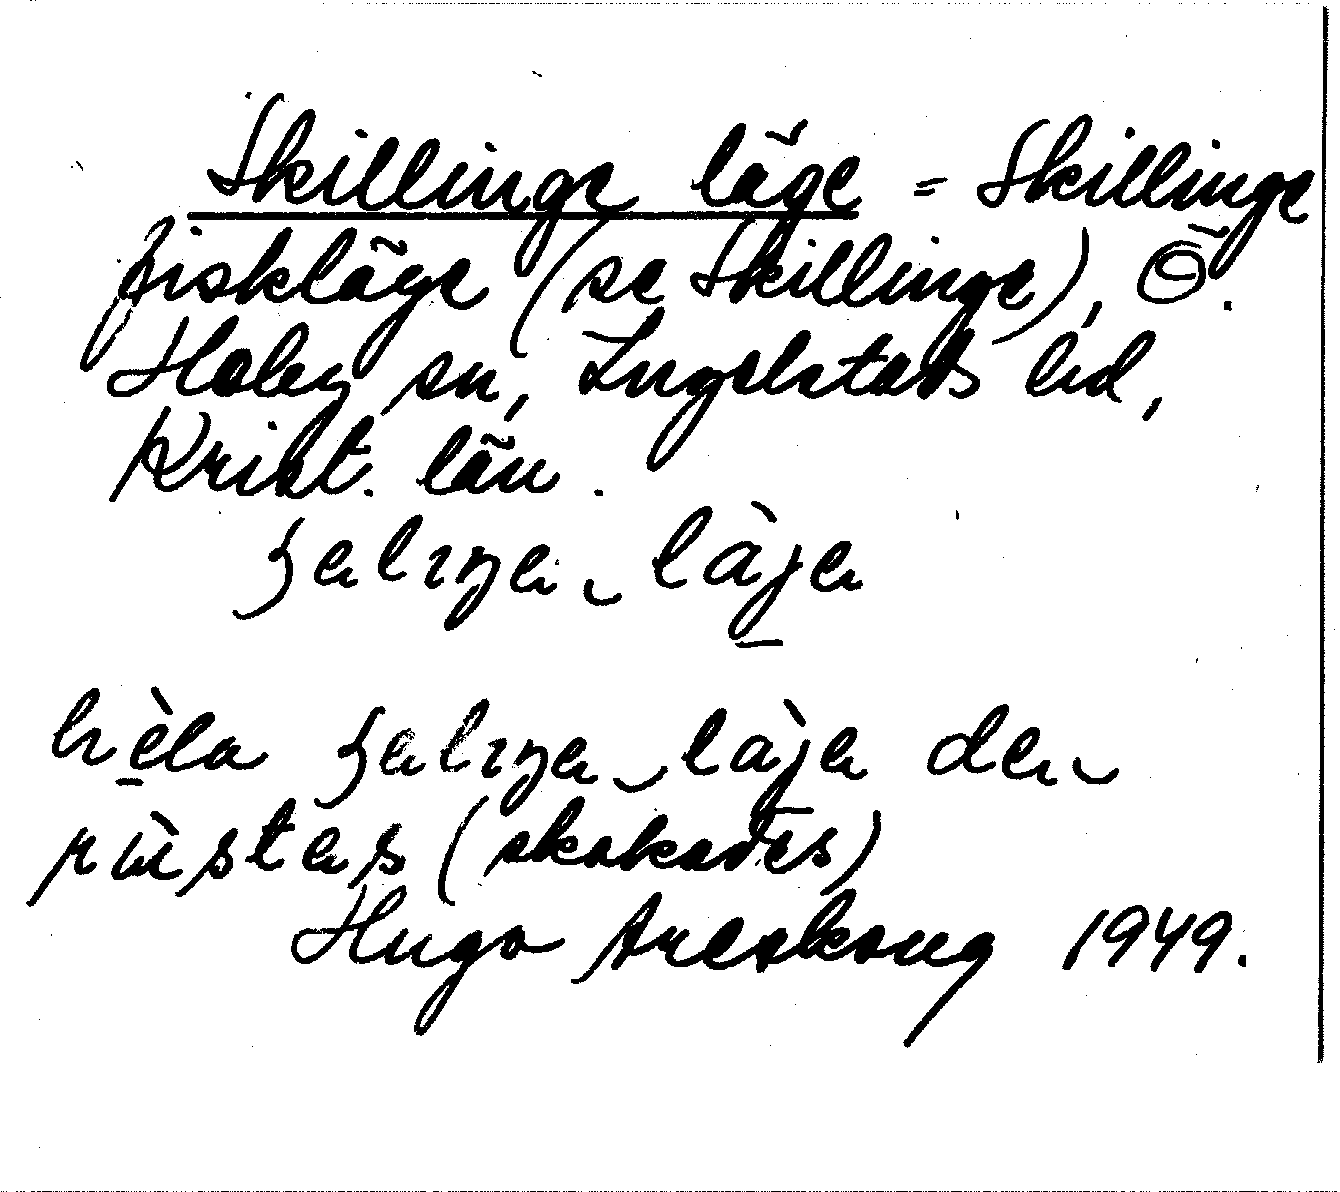 Skillinge läge = Skillinge
fiskläge (se Skillinge), Ö.
Hoby sn, Ingelstads hd,
Krist. län.
läja
hela läja
(skakades)
Hugo Areskoug 1949.